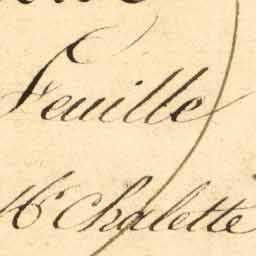 Feuille
Mr Chalette